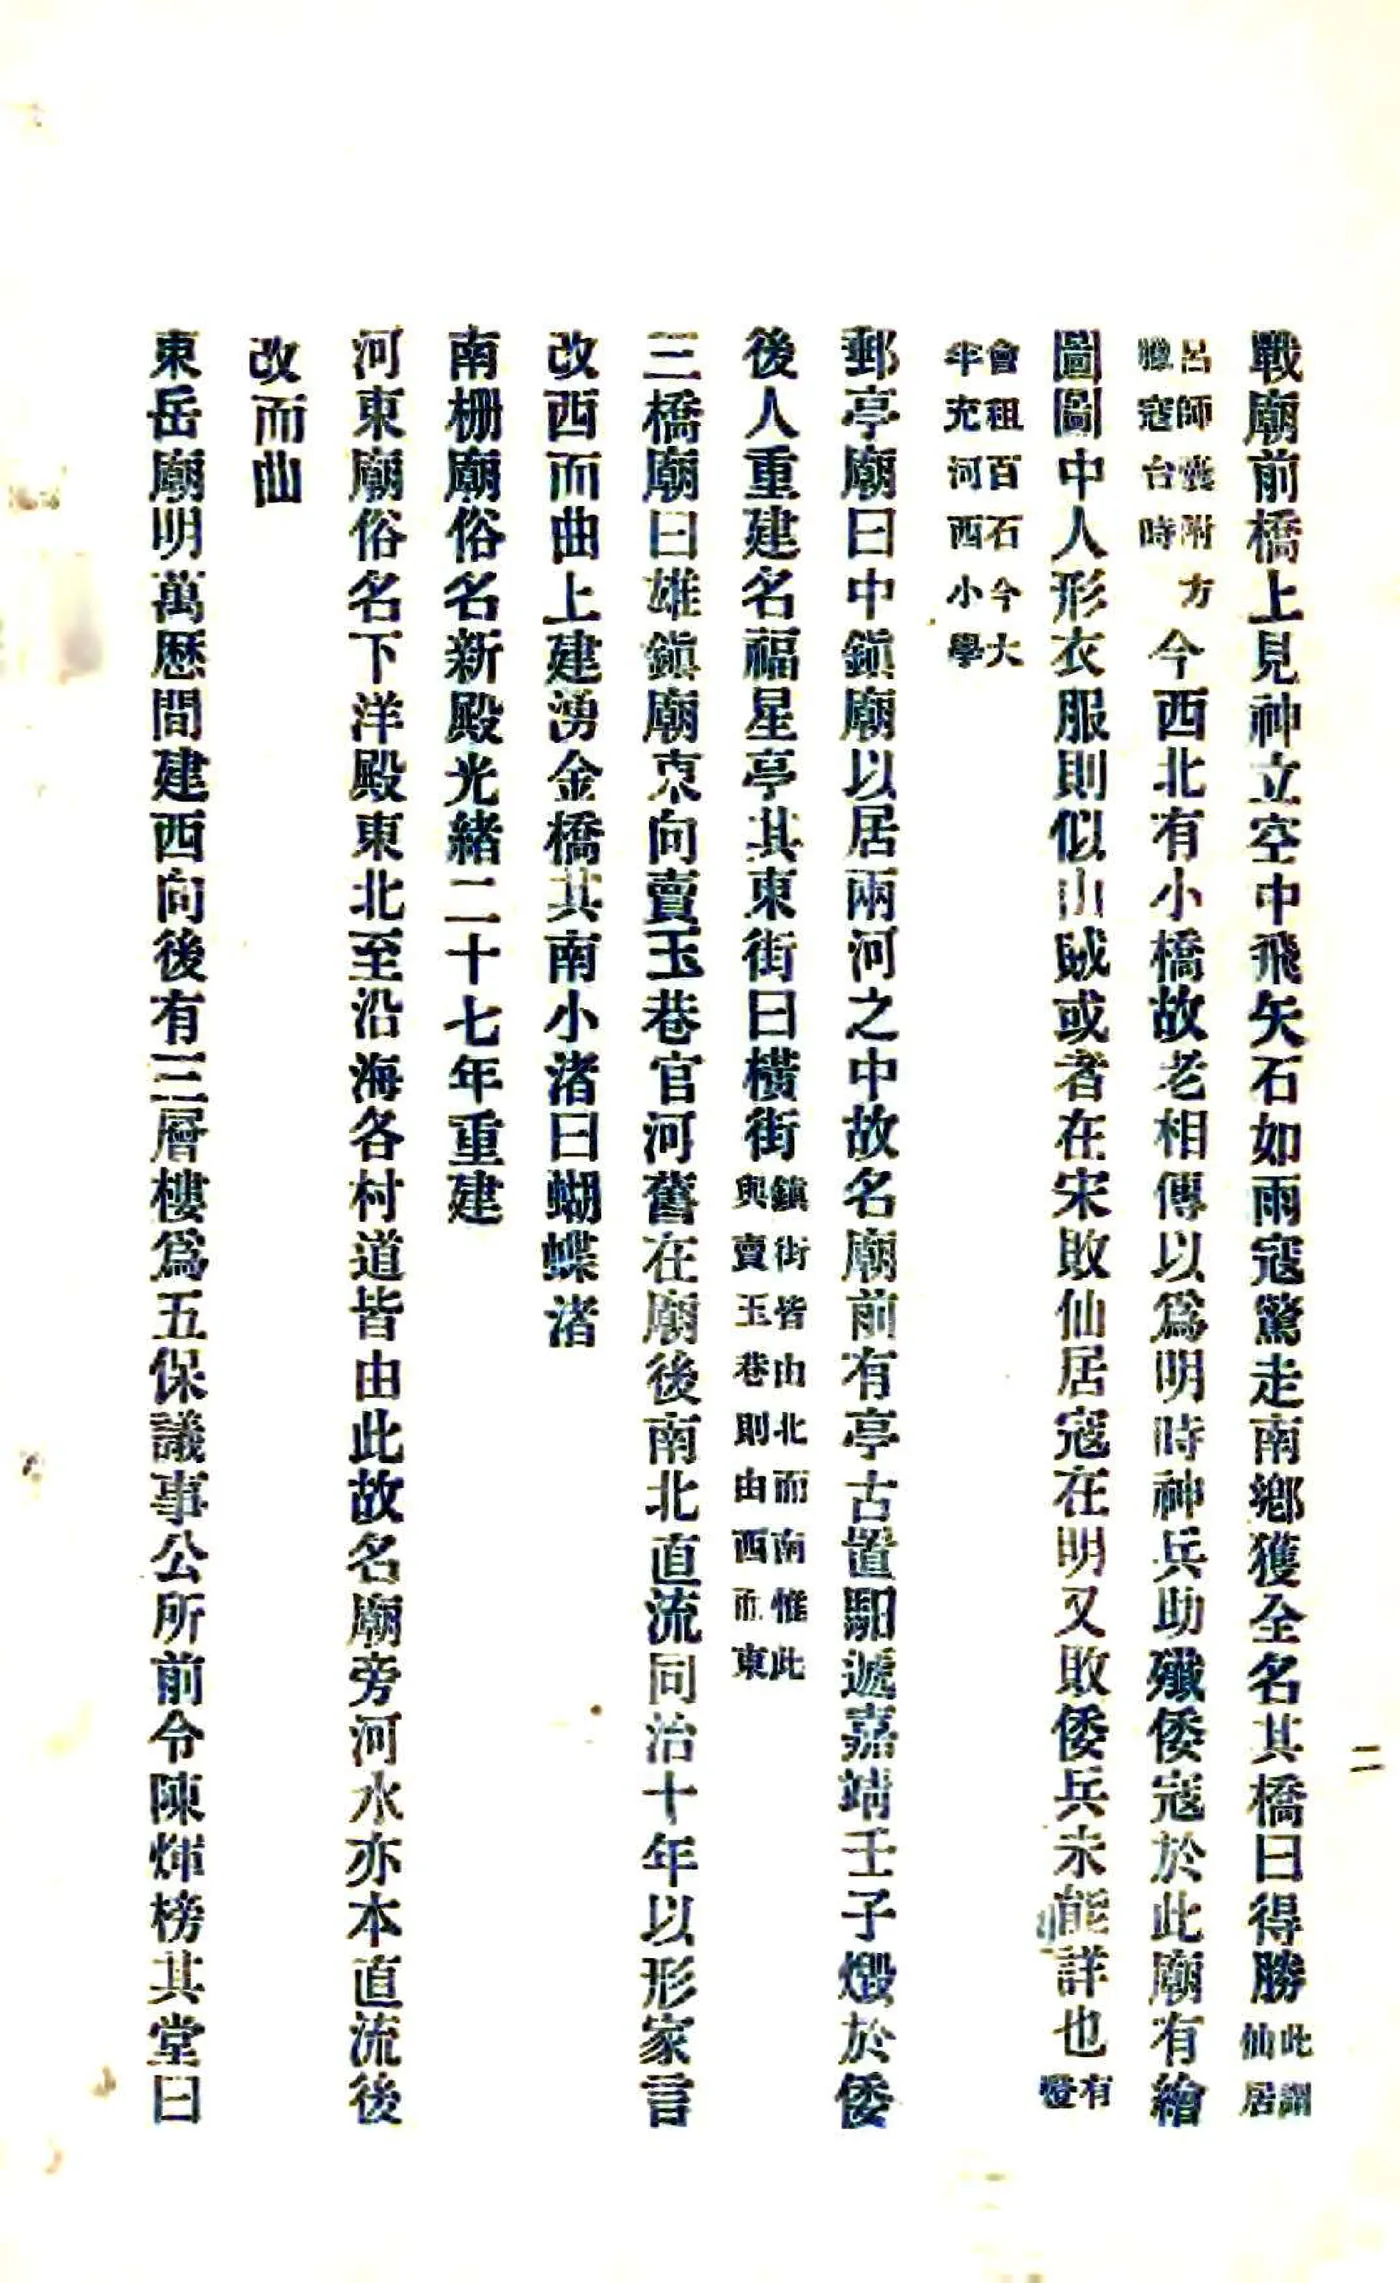 戰廟前橋上見神立空中飛矢石如雨寇驚走南鄉獲全名其橋曰得勝此謂仙居
呂師囊附方臘寇台時今西北有小橋故老相傳以爲明時神兵助殲倭寇於此廟有繪
圖圖中人形衣服則似山賊或者在宋敗仙居寇在明又敗倭兵未能詳也有燈
會租百石今大半充河西小學
郵亭廟曰中鎭廟以居兩河之中故名廟前有亭古置馹遞嘉靖壬子燬於倭
後人重建名福星亭其東街曰橫街鎭街皆由北而南惟此與賣玉巷則由西而東
三橋廟曰雄鎭廟東向賣玉巷官河舊在廟後南北直流同治十年以形家言
改西而曲上建湧金橋其南小渚曰蝴蝶渚
南柵廟俗名新殿光緒二十七年重建
河東廟俗名下洋殿東北至沿海各村道皆由此故名廟旁河水亦本直流後
改而曲
東岳廟明萬歷間建西向後有三層樓爲五保議事公所前令陳煇榜其堂曰
二